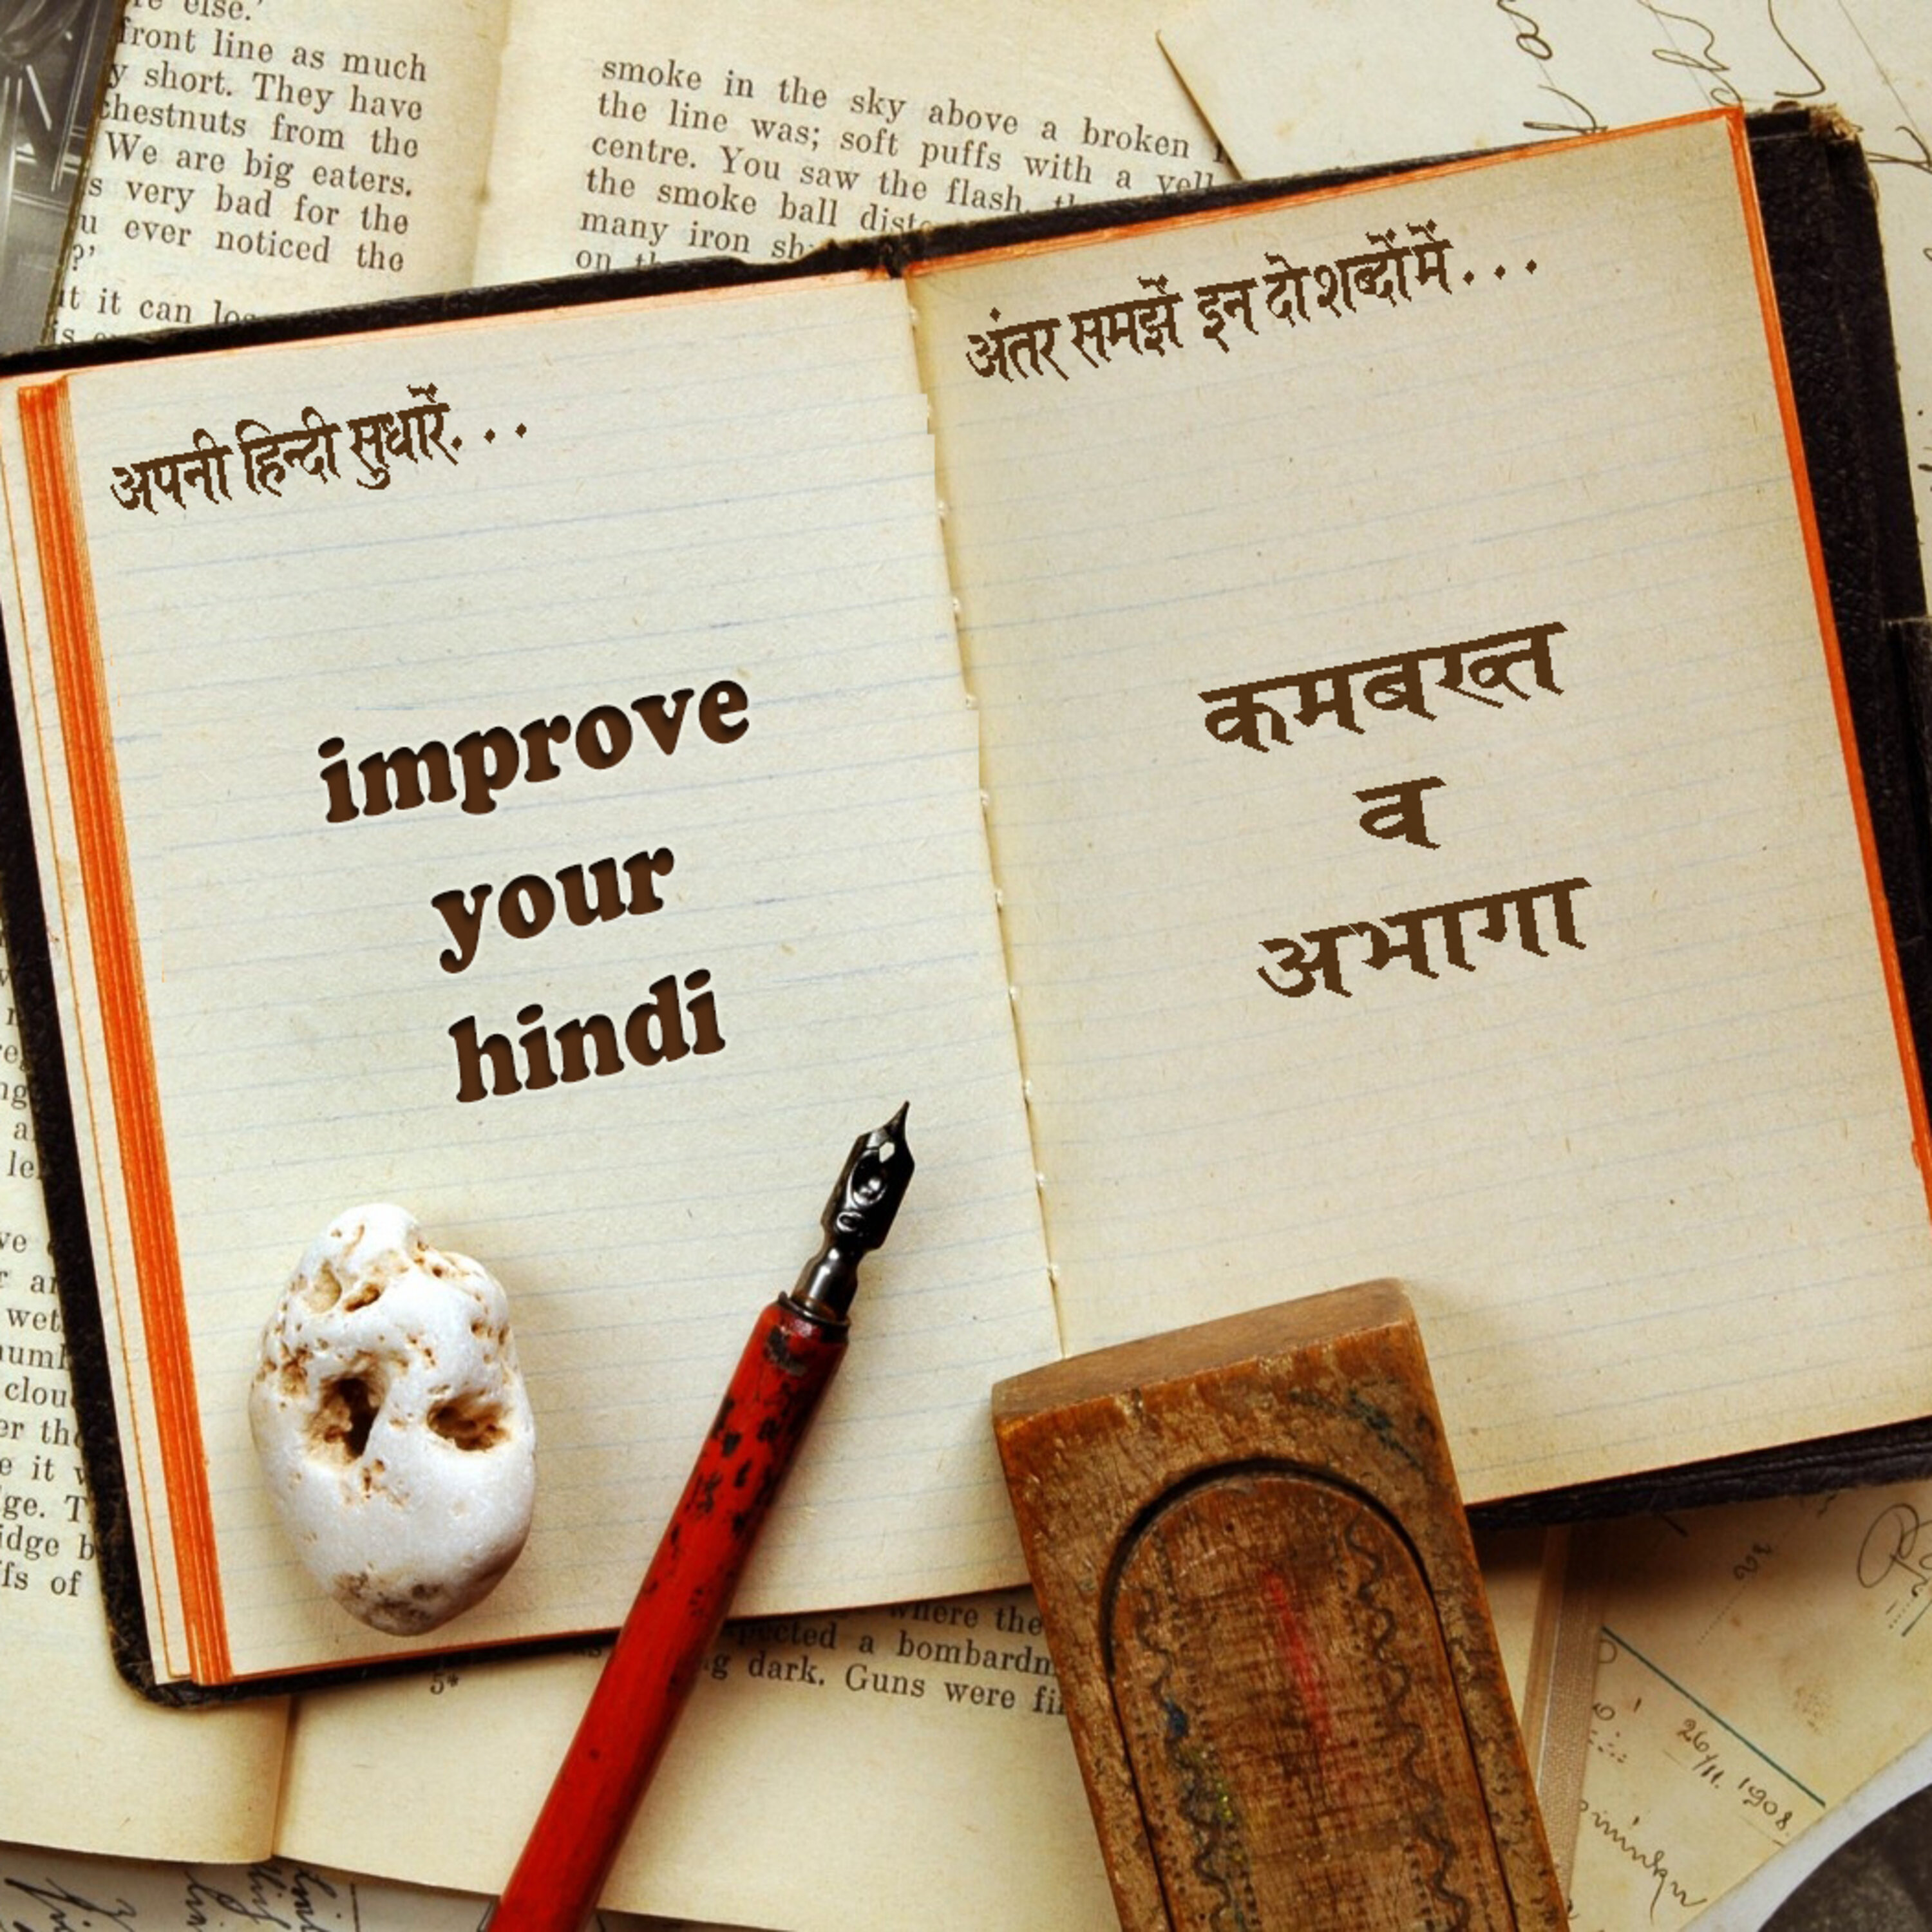 re else.'
front line as much
y short. They have
chestnuts from the
We are big eaters.
s very bad for the
u ever noticed the
?'
it it can
smoke in the sky above a broken
the line was; soft puffs with a
centre. You saw the flash,
the smoke ball
many iron
on
अपनी हिन्दी सुधारें...
improve
your
hindi
अंतर समझें इन दो शब्दों में...
कमबख्त
व
अभागा
wet
clou
it
ge. T
idge b
fs of
5*
where the
a bombardm
g dark. Guns were
26/11. 1908.